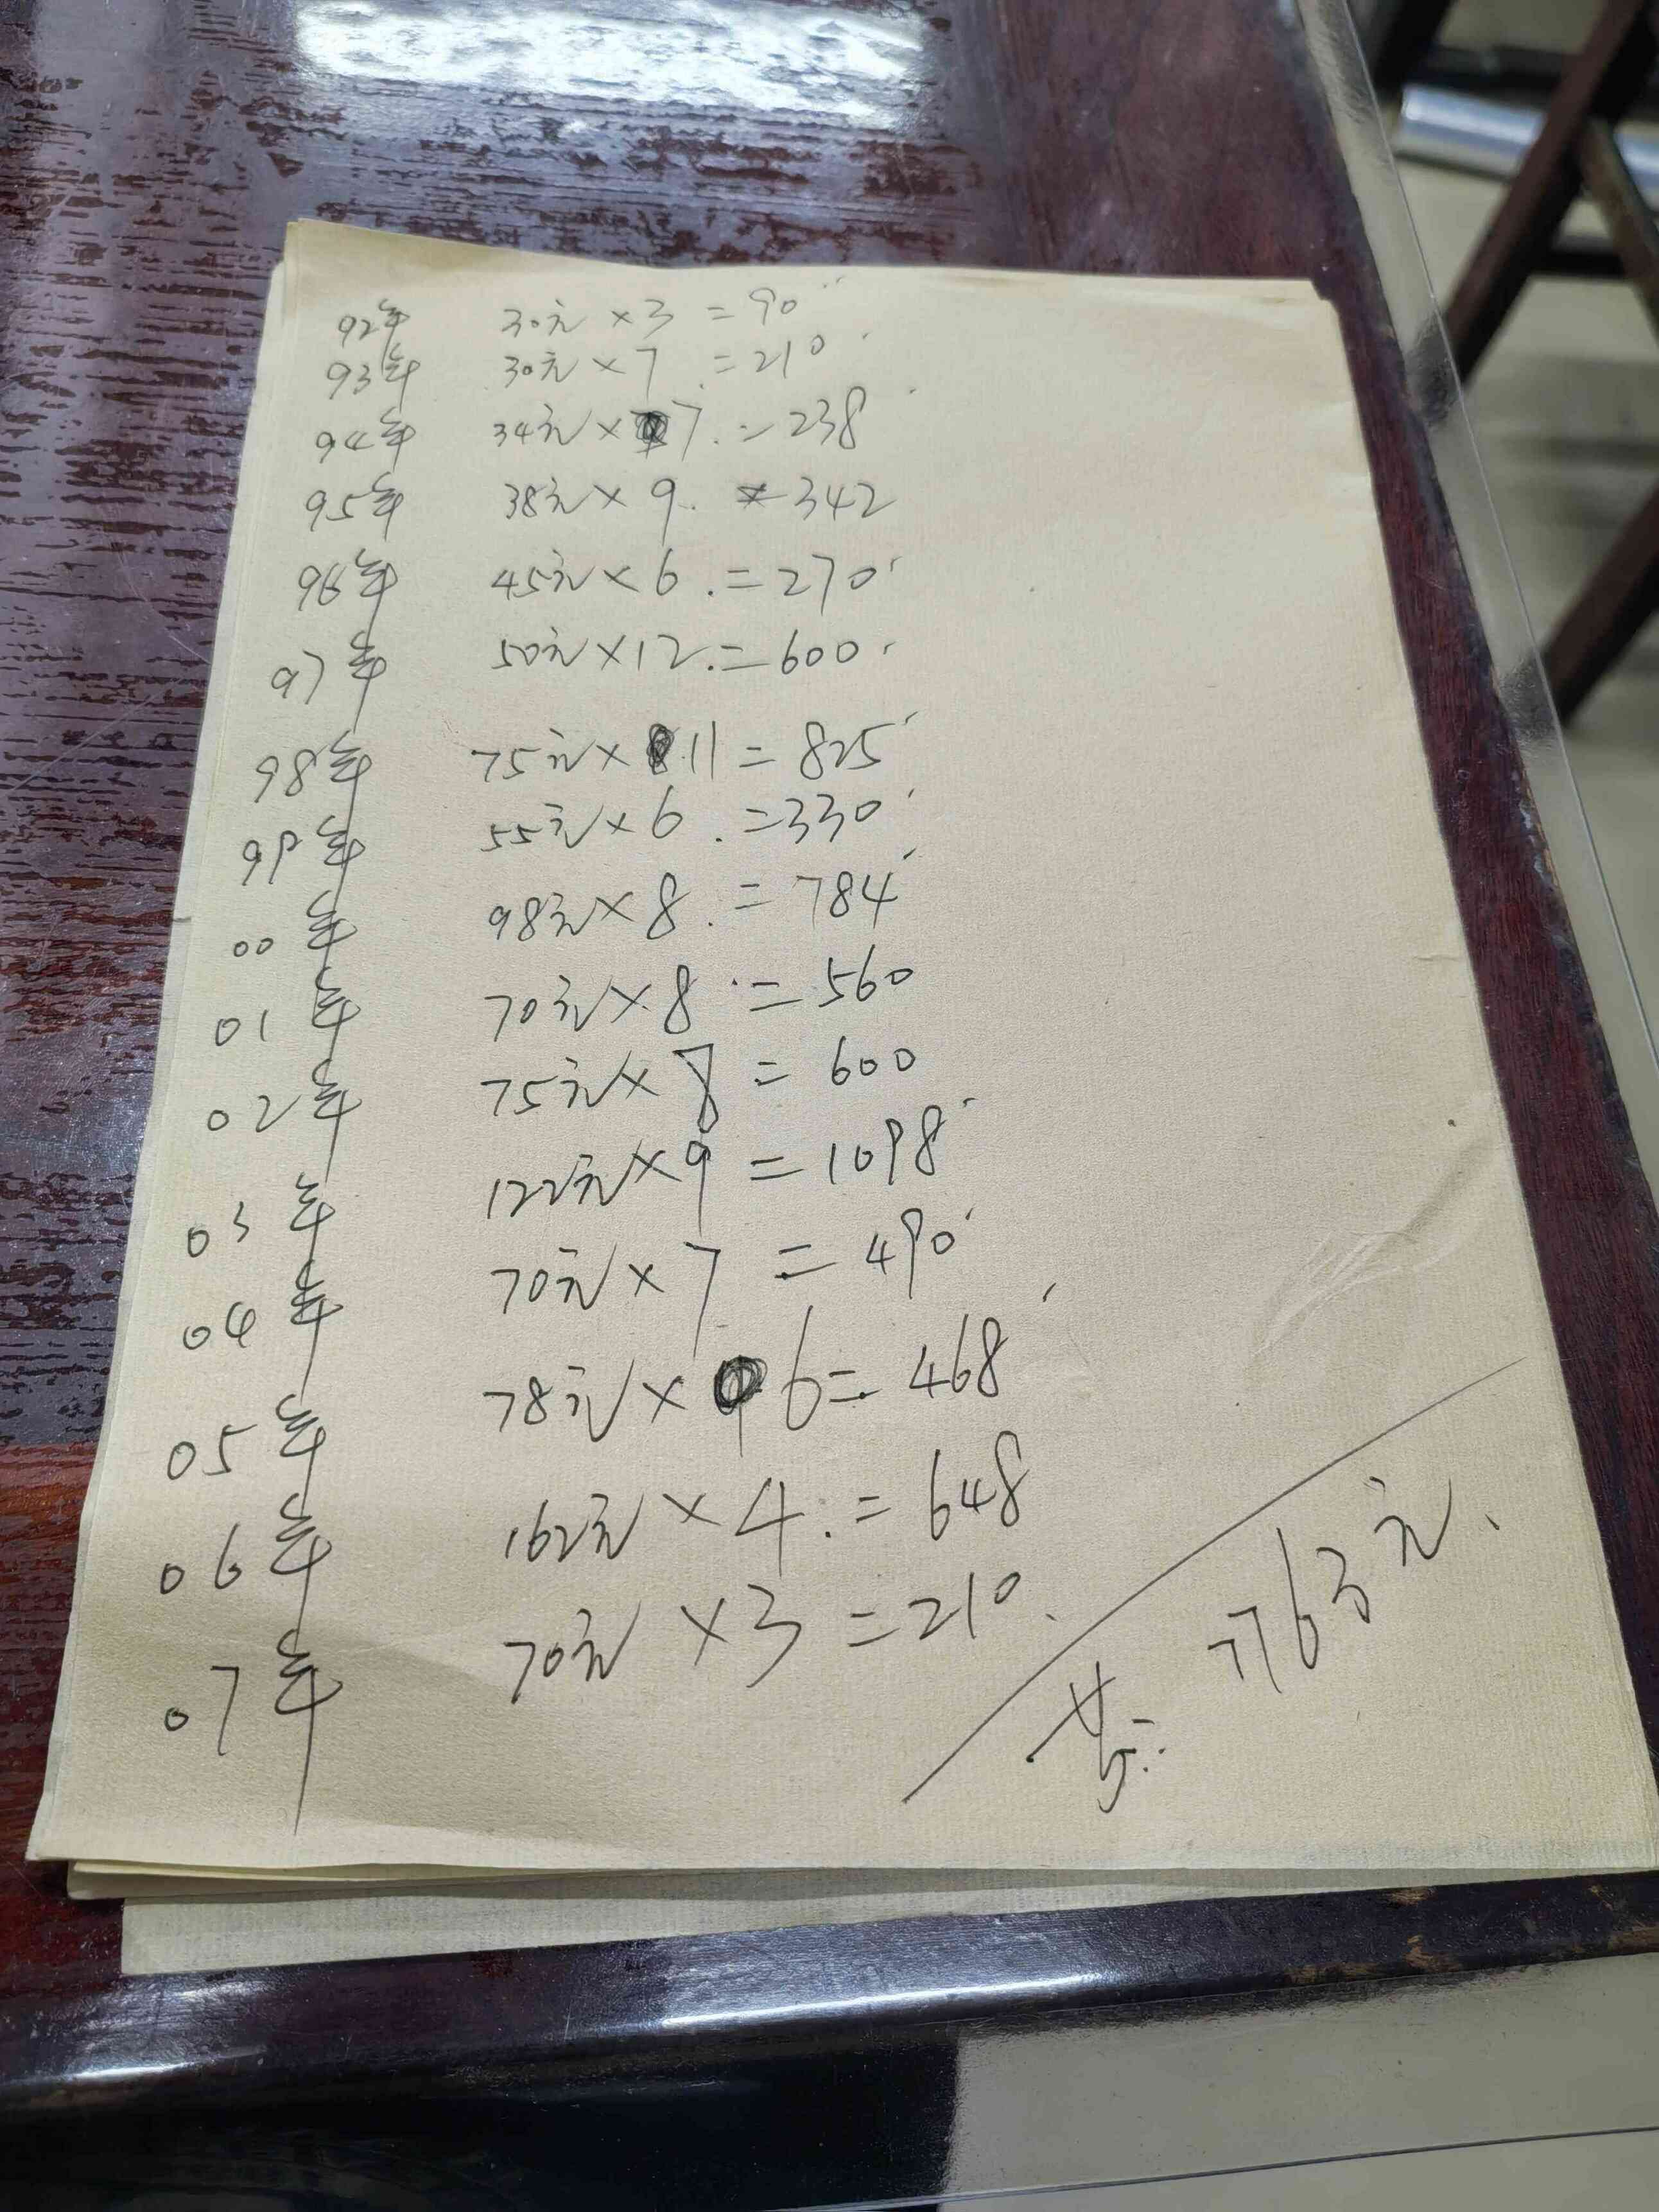 92年 30元×3 =90
93年 30元×7 =210
94年 34元×7.=238
95年 38元×9. =342
96年 45元×6.=270
97年 50元×12.=600.
98年 75元×11=825
99年 55元×6.=330
00年 98元×8.=784
01年 70元×8.=560
02年 75元×8=600
03年 122元×9=1098
04年 70元×7=490
05年 78元×6=468
06年 162元×4.=648
07年 70元×3=210.
共: 7763元.